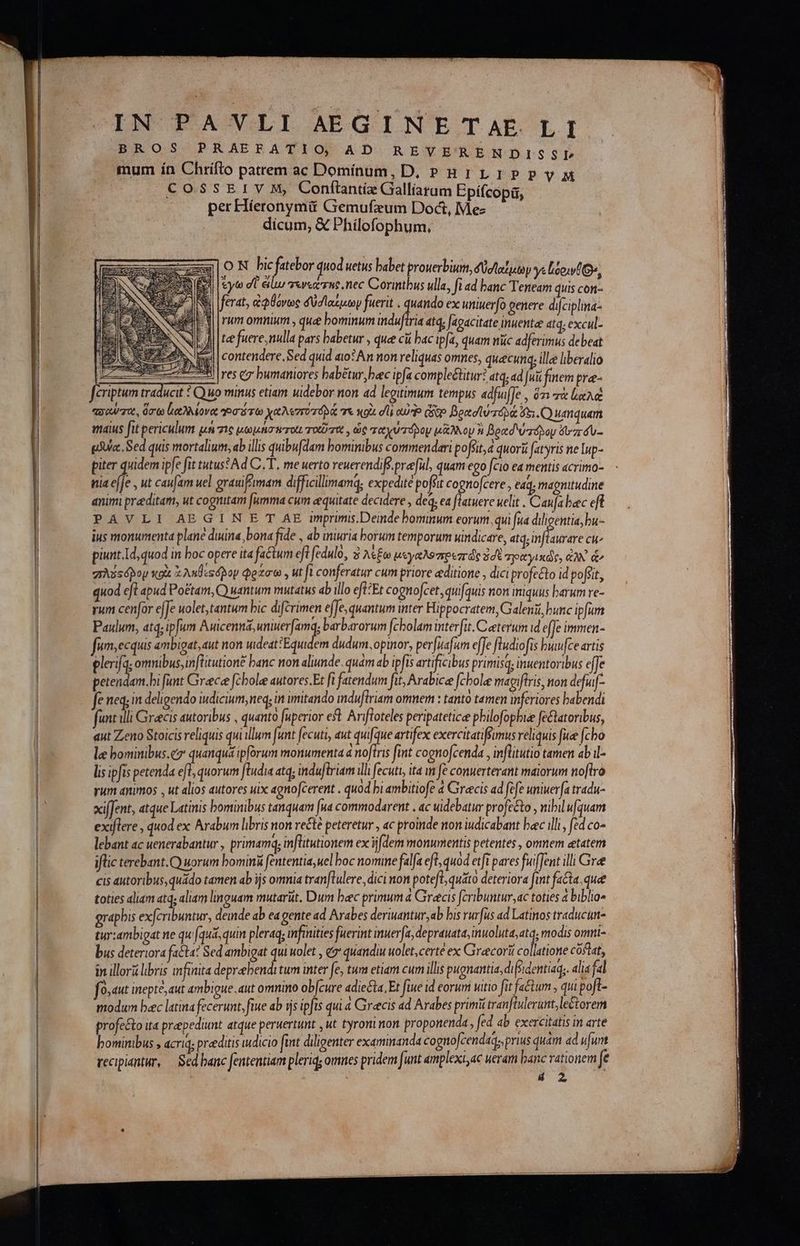 IN PAVLI AEGINETAE LI
BROS PRAEFATIO, AD REVERENDISSI-
mum in Christo patrem ac Dominum, D. PHILIPPVM
COSSEIVM, Constantiæ Galliarum Episcopũ,
per Hieronymũ Gemusæum Doct. Me-
dicum, & Philosophum.
NON hic fatebor quod uetus habet prouerbium,
nec Corinthus ulla, si ad hanc Teneam quis con-
ferat, ἀφθόνως εὐδαίμων fuerit. quando ex uniuerso genere disciplina-
rum omnium, quæ hominum industria atq; sagacitate inuentæ atq; excul-
tæ fuere, nulla pars habetur, quæ cũ hac ipsa, quam nũc adferimus debeat
contendere. Sed quid aio? An non reliquas omnes, quæcunq; illæ liberalio
res & humaniores habẽtur, hæc ipsa complectitur? atq; ad suũ finem præ-
scriptum traducit? Quo minus etiam uidebor non ad legitimum tempus adfuisse,
Quanquam
maius sit periculum
Sed quis mortalium, ab illis quibusdam hominibus commendari possit, à quorũ satyris ne Iup-
piter quidem ipse sit tutus? Ad C. T. me uerto reuerendiss. præsul, quam ego scio ea mentis acrimo-
nia esse, ut causam uel grauissimam difficillimamq; expedite possit cognoscere, eaq; magnitudine
animi præditam, ut cognitam summa cum æquitate decidere, deq; ea statuere uelit. Causa hæc est
PAVLI AEGINETAE imprimis. Deinde hominum eorum, qui sua diligentia, hu-
ius monumenta planè diuina, bona fide, ab iniuria horum temporum uindicare, atq; instaurare cu-
piunt. Id, quod in hoc opere ita factum est sedulò,
ut si conferatur cum priore æditione, dici profecto id possit,
quod est apud Poëtam, Quantum mutatus ab illo est? Et cognoscet, quisquis non iniquus harum re-
rum censor esse uolet, tantum hic discrimen esse, quantum inter Hippocratem, Galenũ, hunc ipsum
Paulum, atq; ipsum Auicennã, uniuersamq; barbarorum scholam intersit. Cæterum id esse immen-
sum, ecquis ambigat, aut non uideat? Equidem dudum, opinor, persuasum esse studiosis huiusce artis
plerisq; omnibus, institutionẽ hanc non aliunde, quàm ab ipsis artificibus primisq; inuentoribus esse
petendam. hi sunt Græcæ scholæ autores. Et si fatendum sit, Arabicæ scholæ magistris, non defuis-
se neq; in deligendo iudicium, neq; in imitando industriam omnem: tantò tamen inferiores habendi
sunt illi Græcis autoribus, quantò superior est Aristoteles peripateticæ philosophiæ sectatoribus,
aut Zeno Stoicis reliquis qui illum sunt secuti, aut quisque artifex exercitatissimus reliquis suæ scho
læ hominibus. & quanquã ipsorum monumenta à nostris sint cognoscenda, institutio tamen ab il-
lis ipsis petenda est, quorum studia atq; industriam illi secuti, ita in se conuerterant maiorum nostro
rum animos, ut alios autores uix agnoscerent. quòd hi ambitiose à Græcis ad sese uniuersa tradu-
xissent, atque Latinis hominibus tanquam sua commodarent. ac uidebatur profecto, nihil usquam
existere, quod ex Arabum libris non rectè peteretur, ac proinde non iudicabant hæc illi, sed co-
lebant ac uenerabantur, primamq; institutionem ex ijsdem monumentis petentes, omnem ætatem
istic terebant. Quorum hominũ sententia, uel hoc nomine falsa est, quòd etsi pares fuissent illi Græ
cis autoribus, quãdo tamen ab ijs omnia transtulere, dici non potest, quãtò deteriora sint facta, quæ
toties aliam atq; aliam linguam mutarũt. Dum hæc primum à Græcis scribuntur, ac toties à biblio-
graphis exscribuntur, deinde ab ea gente ad Arabes deriuantur, ab his rursus ad Latinos traducun-
tur: ambigat ne quisquã, quin pleraq; infinities fuerint inuersa, deprauata, inuoluta, atq; modis omni-
bus deteriora facta? Sed ambigat qui uolet, & quandiu uolet, certè ex Græcorũ collatione cõstat,
in illorũ libris infinita depræhendi tum inter se, tum etiam cum illis pugnantia, dissidentiaq;. alia fal
sò, aut ineptè, aut ambigue, aut omnino obscure adiecta. Et siue id eorum uitio sit factum, qui post-
modum hæc latina fecerunt, siue ab ijs ipsis qui à Græcis ad Arabes primũ transtulerunt, lectorem
profecto ita præpediunt atque peruertunt, ut tyroni non proponenda, sed ab exercitatis in arte
hominibus, acriq; præditis iudicio sint diligenter examinanda cognoscendaq;, prius quàm ad usum
recipiantur. Sed hanc sententiam pleriq; omnes pridem sunt amplexi, ac ueram hanc rationem se
a 2